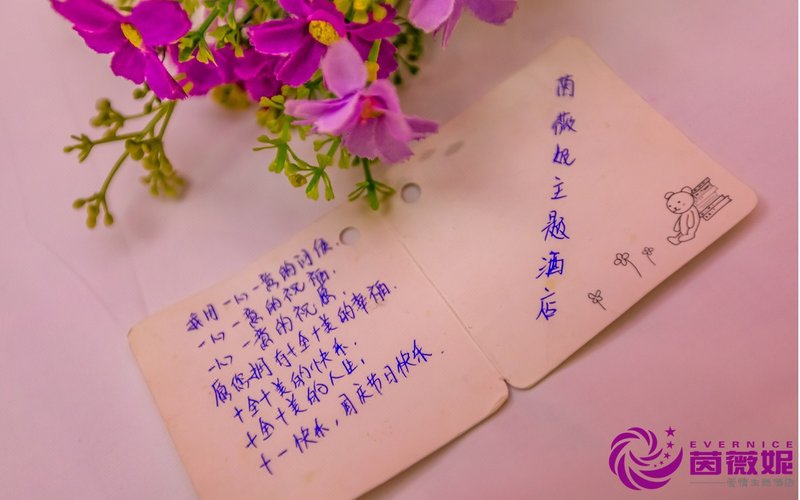 我用一心一意的问候.
一心一意的祝福.
一心一意的祝愿.
愿您拥有十全十美的幸福.
十全十美的快乐.
十全十美的人生,
十一快乐,国庆节日快乐.
茵薇妮主题酒店
EVERNICE
茵薇妮
爱情主题酒店